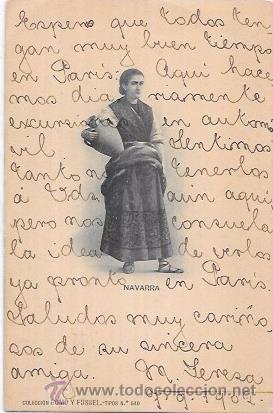 Espero que todos ten-
gan muy buen tiempo
en París. Aquí hace-
mos diariamente
excursion en automó
vil. Sentimos
tanto no tenerlos
á Vds. aun aquí,
pero nos consuela
la idea de verlos
ya pronto en París.
Saludos muy cariño-
sos de su sincera
amiga. M. Teresa
NAVARRA
COLECCIÓN ROMO Y FÜSSEL.-TIPOS N.º 540
todocoleccion.net
www.todocoleccion.net